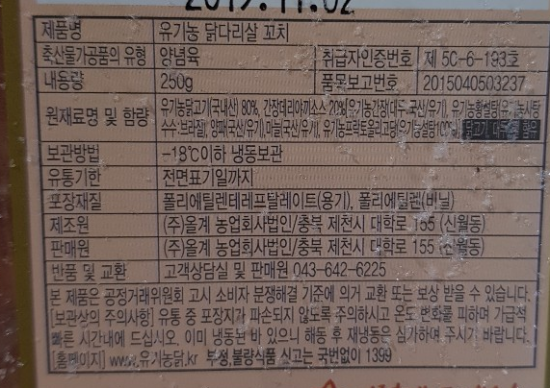 제품명 유기농 닭다리살 꼬치
축산물가공품의 유형 양념육 취급자인증번호 제 5C-6-193호
내용량 250g 품목보고번호 2015040503237
원재료명 및 함량 유기농닭고기(국내산) 80%, 간장데리야끼소스 20%(유기농간장(대두,국산/유기), 유기농황설탕(유기농사탕
수수:브라질), 양파(국산/유기), 마늘(국산/유기), 유기농프락토올리고당(유기농설탕100%) 닭고기, 대두,
보관방법 -18℃이하 냉동보관
유통기한 전면표기일까지
포장재질 폴리에틸렌테레프탈레이트(용기), 폴리에틸렌(비닐)
제조원 (주)올계 농업회사법인/충북 제천시 대학로 155 (신월동)
판매원 (주)올계 농업회사법인/충북 제천시 대학로 155 (신월동)
반품 및 교환 고객상담실 및 판매원 043-642-6225
본 제품은 공정거래위원회 고시 소비자 분쟁해결 기준에 의거 교환 또는 보상 받을 수 있습니다.
[보관상의 주의사항] 유통 중 포장지가 파손되지 않도록 주의하시고 온도 변화를 피하며 가급적
빠른 시간내에 드십시오. 이미 냉동된 바 있으니 해동 후 재냉동은 삼가하여 주시기 바랍니다.
[홈페이지] www.유기농닭.kr 부정,불량식품 신고는 국번없이 1399